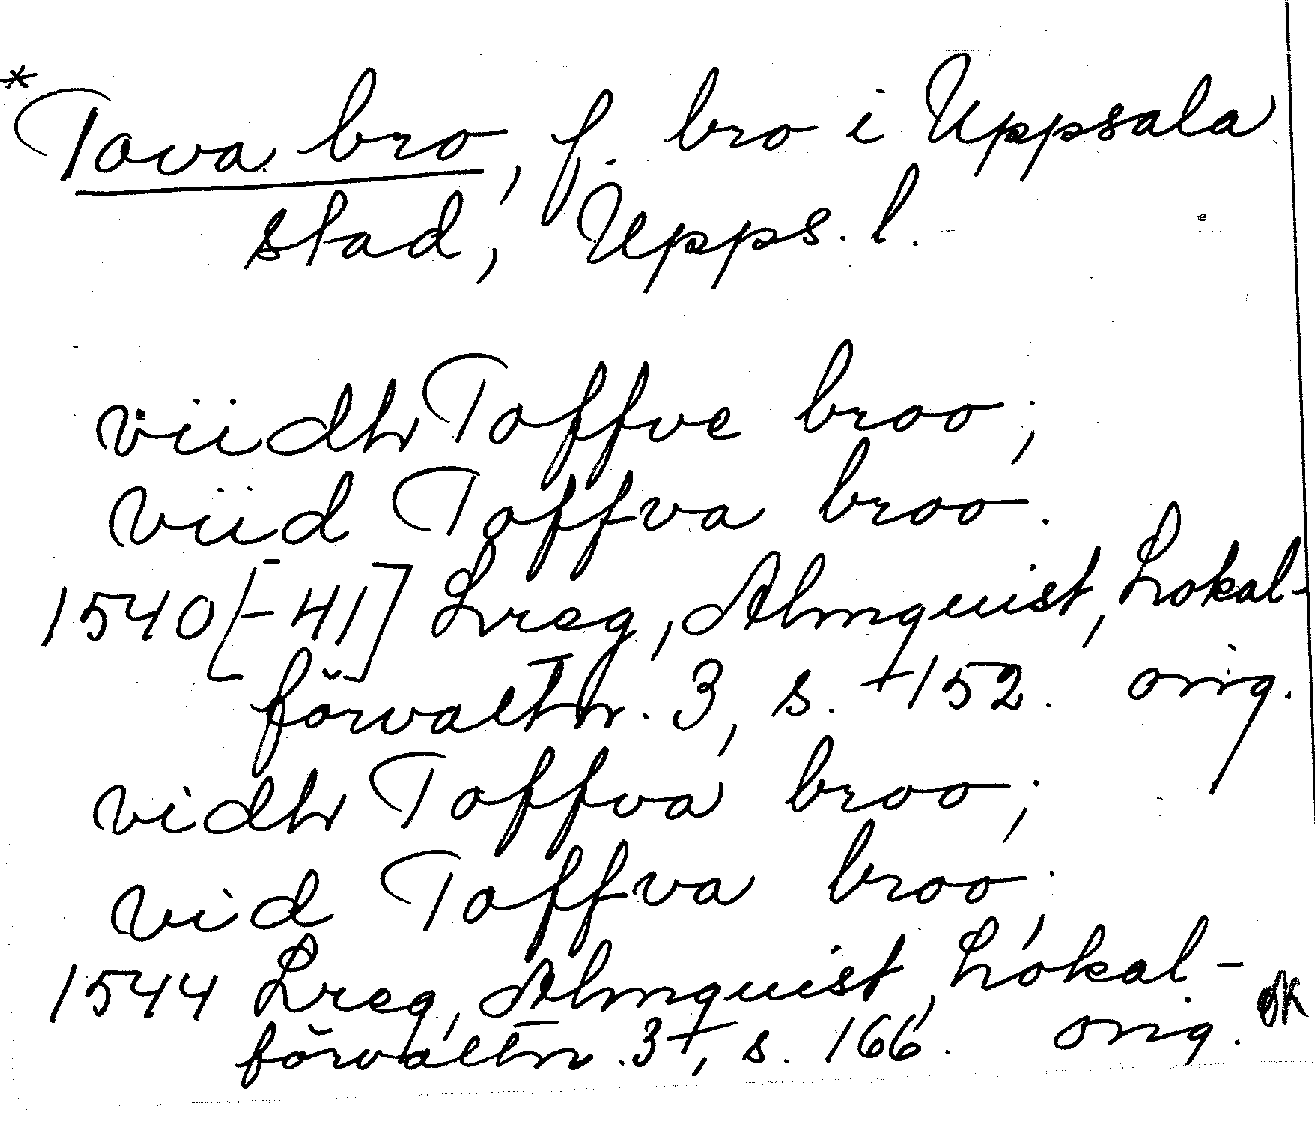 *Tova bro, f. bro i Uppsala
stad, Upps. l.
viidh Toffve broo;
viid Toffva broo.
1540[-41] Lreg, Almquist, Lokal-
förvaltn. 3, s. 152. orig.
vidh Toffva broo;
vid Toffva broo;
1544 Lreg, Almquist, Lokal-
förvaltn. 3, s. 166. orig.